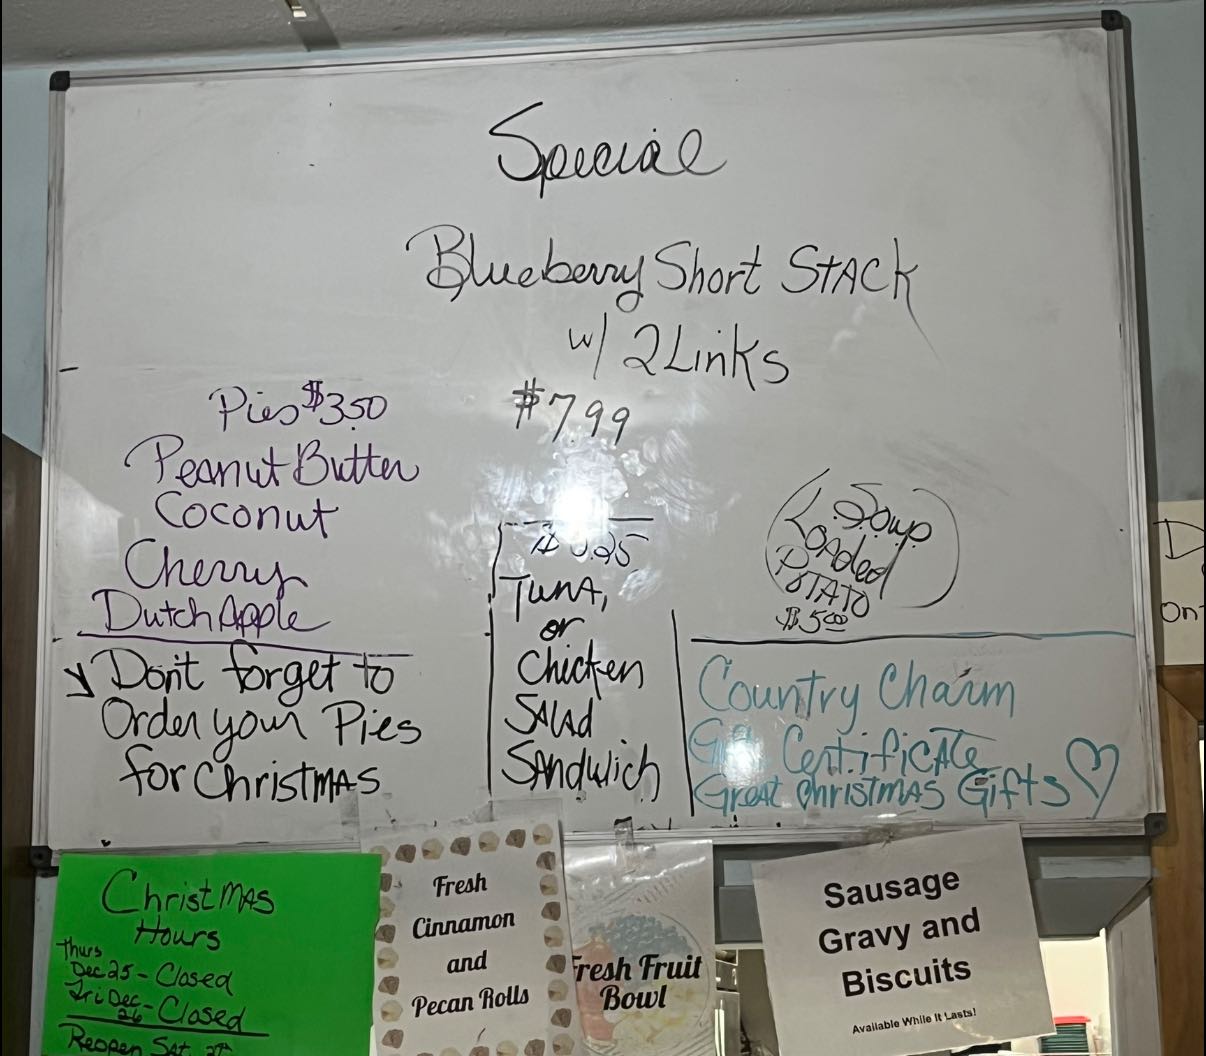 Special
Blueberry Short STACK
w/ 2 Links
$7.99
Pies $3.50
Peanut Butter
Coconut
Cherry
Dutch Apple
Don't forget to
Order your Pies
for ChristMAS
TunA,
or
Chicken
SALAd
SANdwich
Soup
LOAded
POTATO
$5.00
Country Charm
Certificate
Great ChristMAS Gifts
ChristMAS
Hours
Thurs
Dec 25 - Closed
Fri Dec
26 - Closed
Reopen Sat. 27th
Fresh
Cinnamon
and
Pecan Rolls
Fresh Fruit
Bowl
Sausage
Gravy and
Biscuits
Available While It Lasts!
D
On